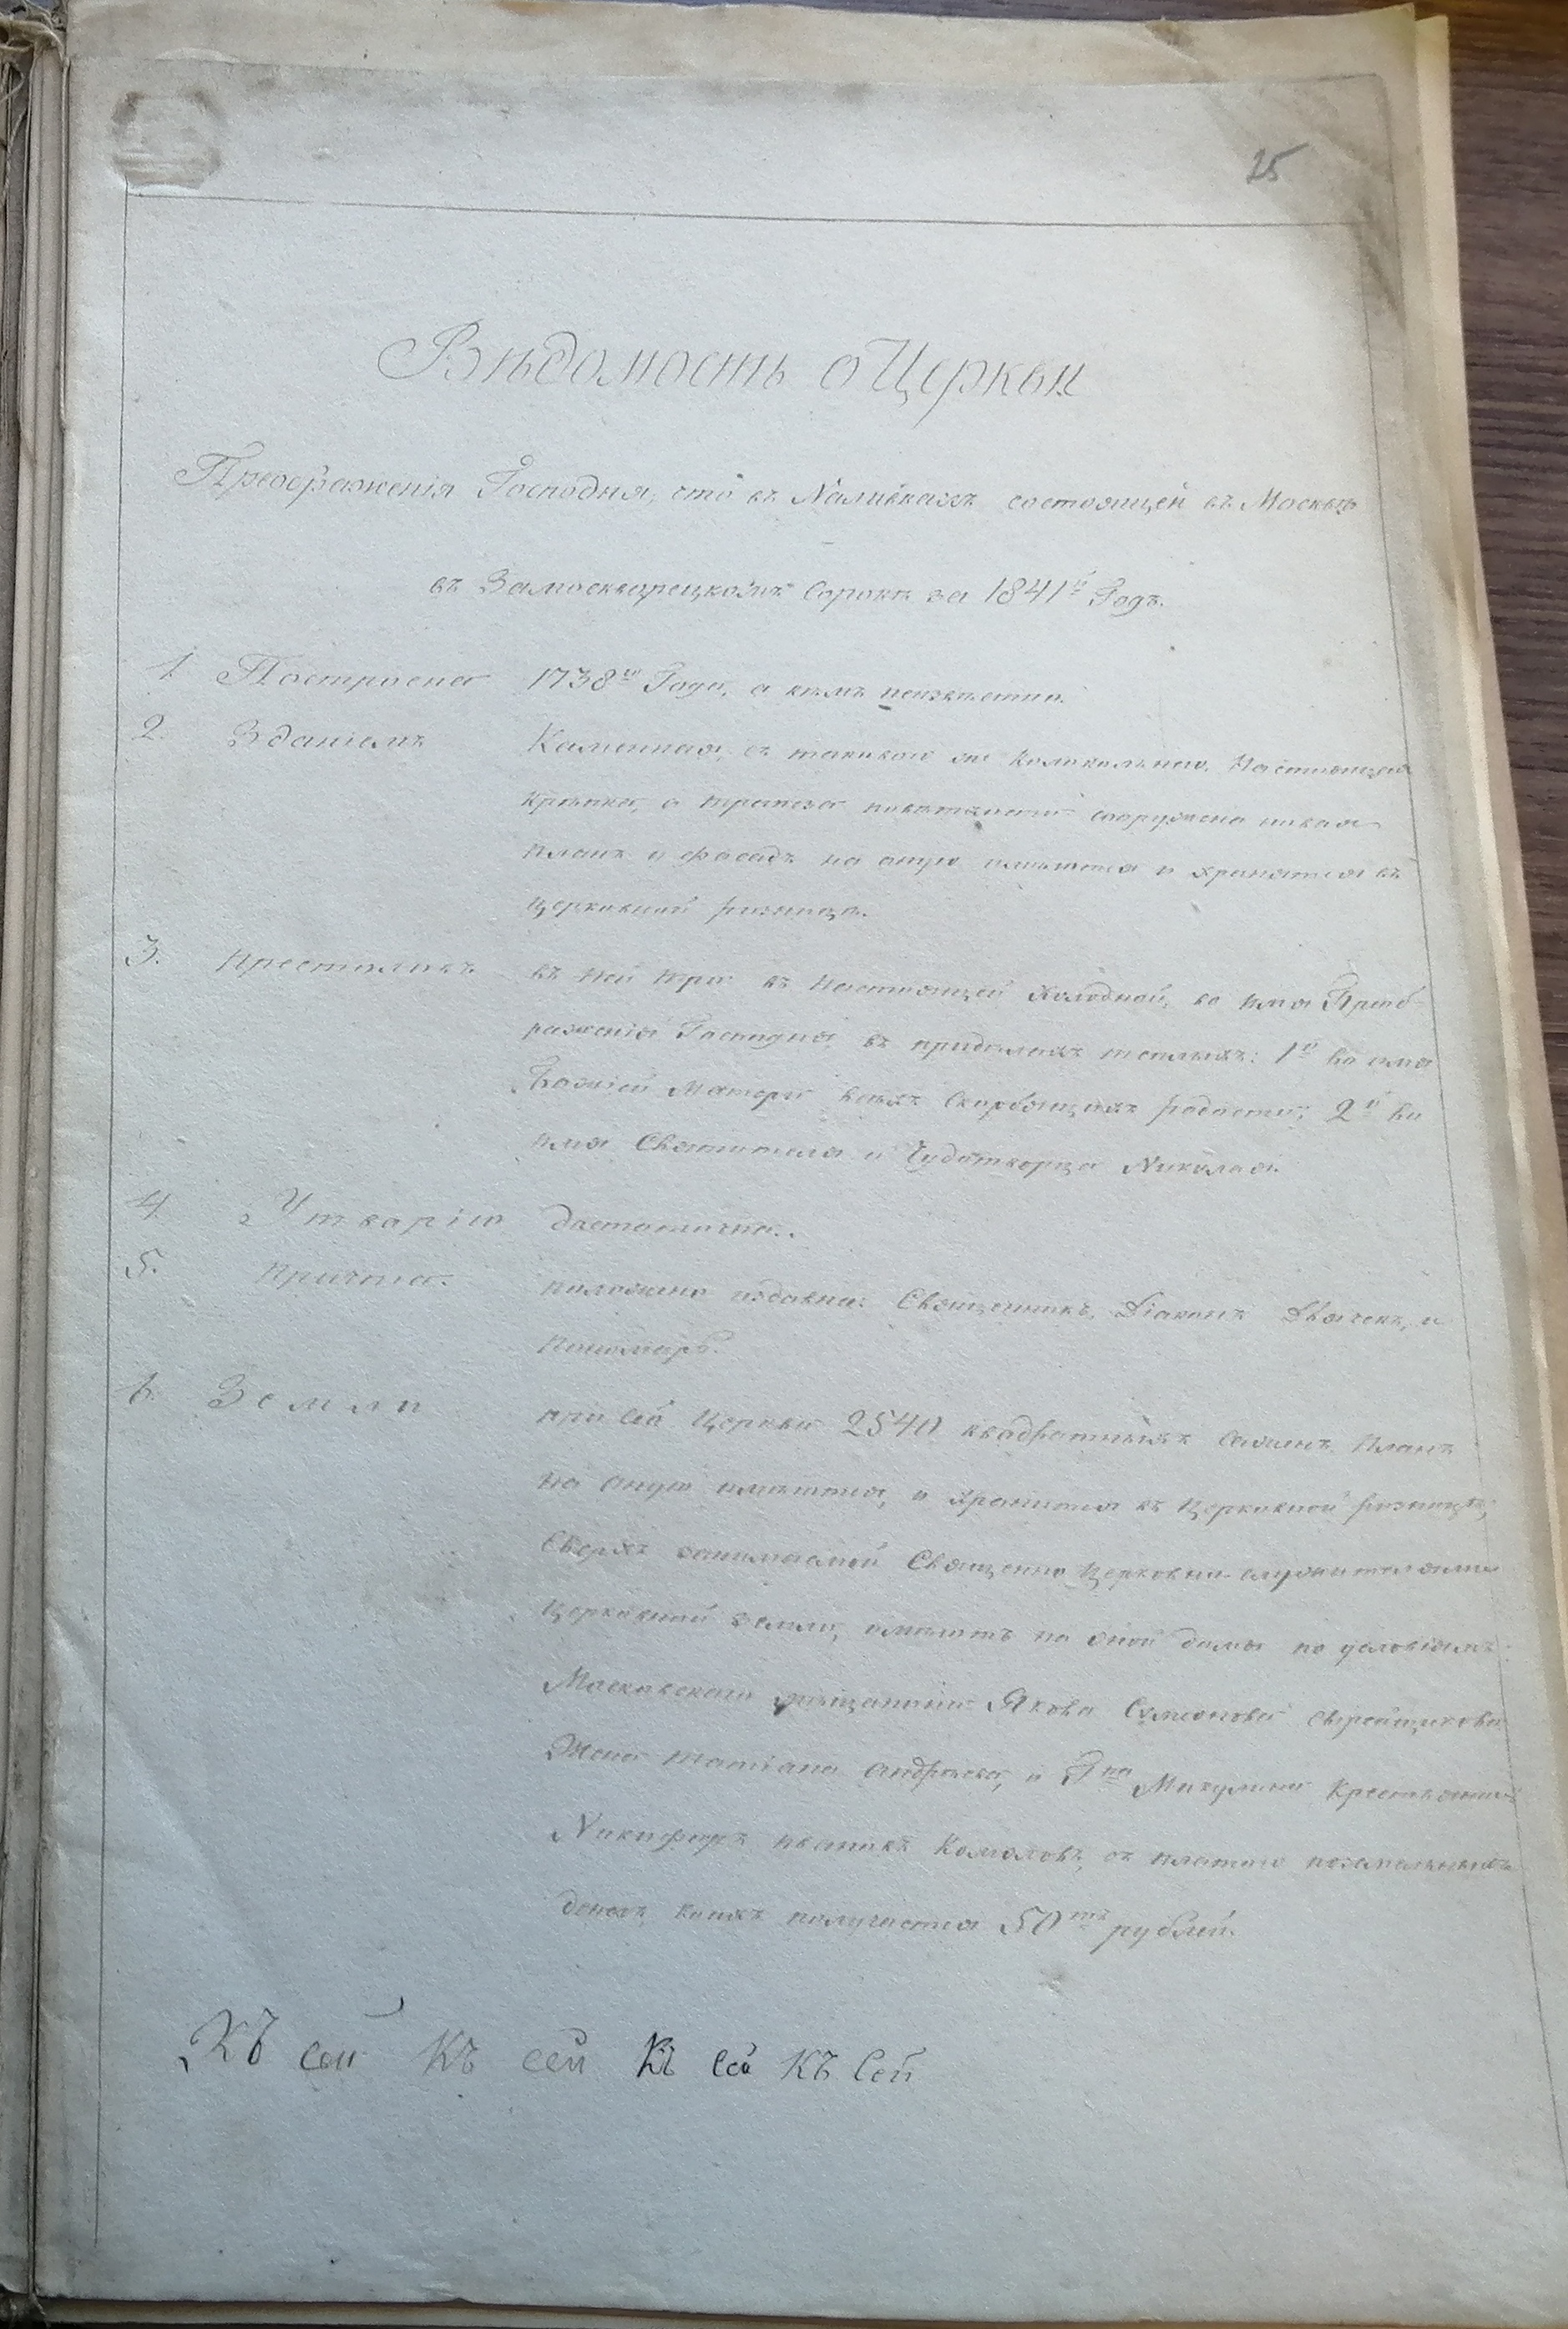 25
Вѣдомость о Церкви
Преображенія Господня, что въ Наливкахъ состоящей въ Москвѣ
въ Замоскворецкомъ Сорокѣ за 1841й Годъ.
1. Построена 1738го Года, а кѣмъ неизвѣстно.
2. Зданіемъ Каменная, съ таковою же колокольнею. Настоящая
крѣпка, а трапеза сооружена новая
планъ и фасадъ на оную имѣется и хранятся въ
Церковной ризнице.
3. Престоловъ въ ней три: въ Настоящей Холодной, во имя Преоб-
раженія Господня, въ придѣлахъ теплыхъ: 1й во имя
Божіей Матери всѣхъ Скорбящихъ радости; 2й во
имя Святителя и Чудотворца Николая.
4. Утварію достаточна.
5. Причта. положено издавна: Священникъ, Діаконъ Дьячекъ, и
Пономарь.
6. Земли при сей Церкви 2540 квадратныхъ Сажень. Планъ
на оную имѣется, и хранится въ Церковной ризницѣ;
Сверхъ занимаемой Священно Церковно-служителями
Церковной земли, имѣютъ на оной домы по условіямъ:
Московскаго мѣщанина Якова Семенова Сырейщикова
Жена Татіана Андреева, и Гна Микулина Крестьянинъ
Никифоръ Ивановъ Комоловъ, съ платою поземельныхъ
денегъ коихъ получается 50тъ рублей.
Къ сей Къ сей Къ сей Къ Сей